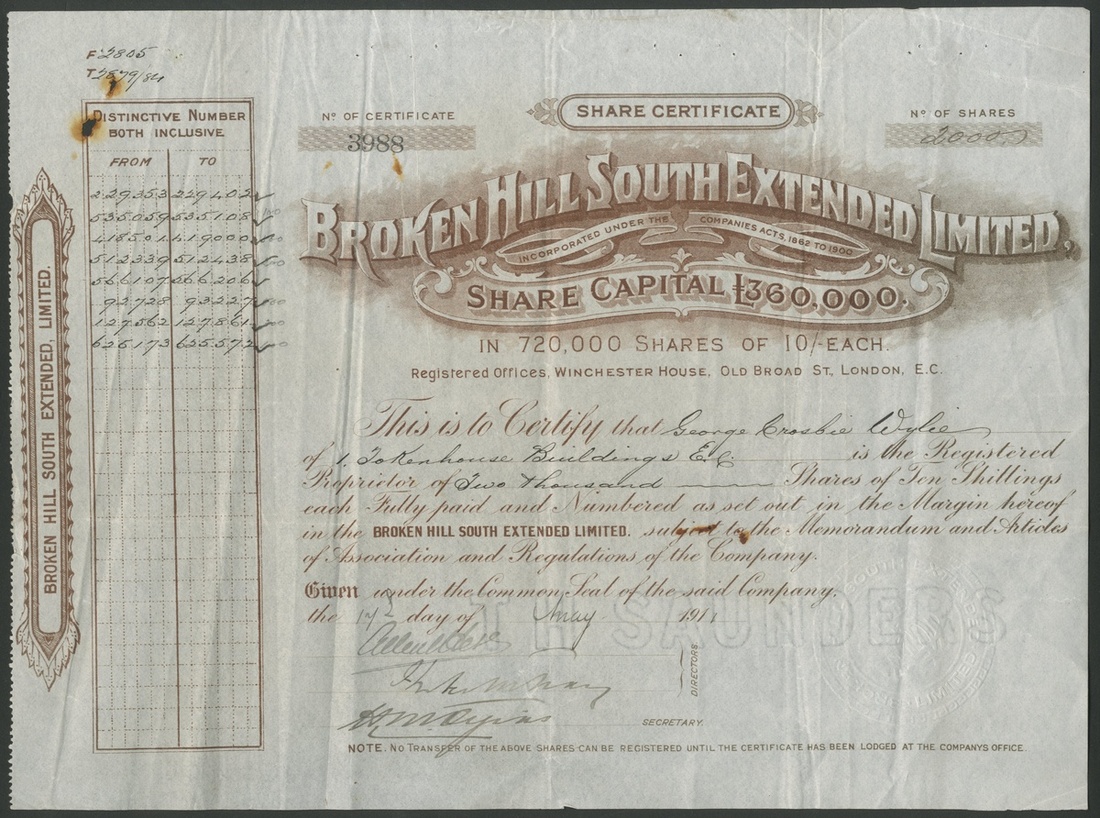 F 2805
T 2879/84
DISTINCTIVE NUMBER
BOTH INCLUSIVE
FROM TO
229353 229402
535059 535108
418501 419000
512339 512438
566107 566206
92728 93227
127562 127861
626173
BROKEN HILL SOUTH EXTENDED, LIMITED.
SHARE CERTIFICATE
No OF CERTIFICATE
3988
No OF SHARES
2000
BROKEN HILL SOUTH EXTENDED LIMITED,
INCORPORATED UNDER THE COMPANIES ACTS, 1862 TO 1900
SHARE CAPITAL £360,000.
IN 720,000 SHARES OF 10/- EACH.
Registered Offices, WINCHESTER HOUSE, OLD BROAD ST., LONDON, E.C.
This is to Certify that George Crosbie Wylie
of 1, Tokenhouse Buildings E.C. is the Registered
Proprietor of Two thousand Shares of Ten Shillings
each Fully paid and Numbered as set out in the Margin hereof
in the BROKEN HILL SOUTH EXTENDED LIMITED. subject to the Memorandum and Articles
of Association and Regulations of the Company.
Given under the Common Seal of the said Company,
the day of May 1911
T H SAUNDERS
SOUTH EXTENDED
LIMITED
DIRECTORS.
SECRETARY.
NOTE. NO TRANSFER OF THE ABOVE SHARES CAN BE REGISTERED UNTIL THE CERTIFICATE HAS BEEN LODGED AT THE COMPANYS OFFICE.